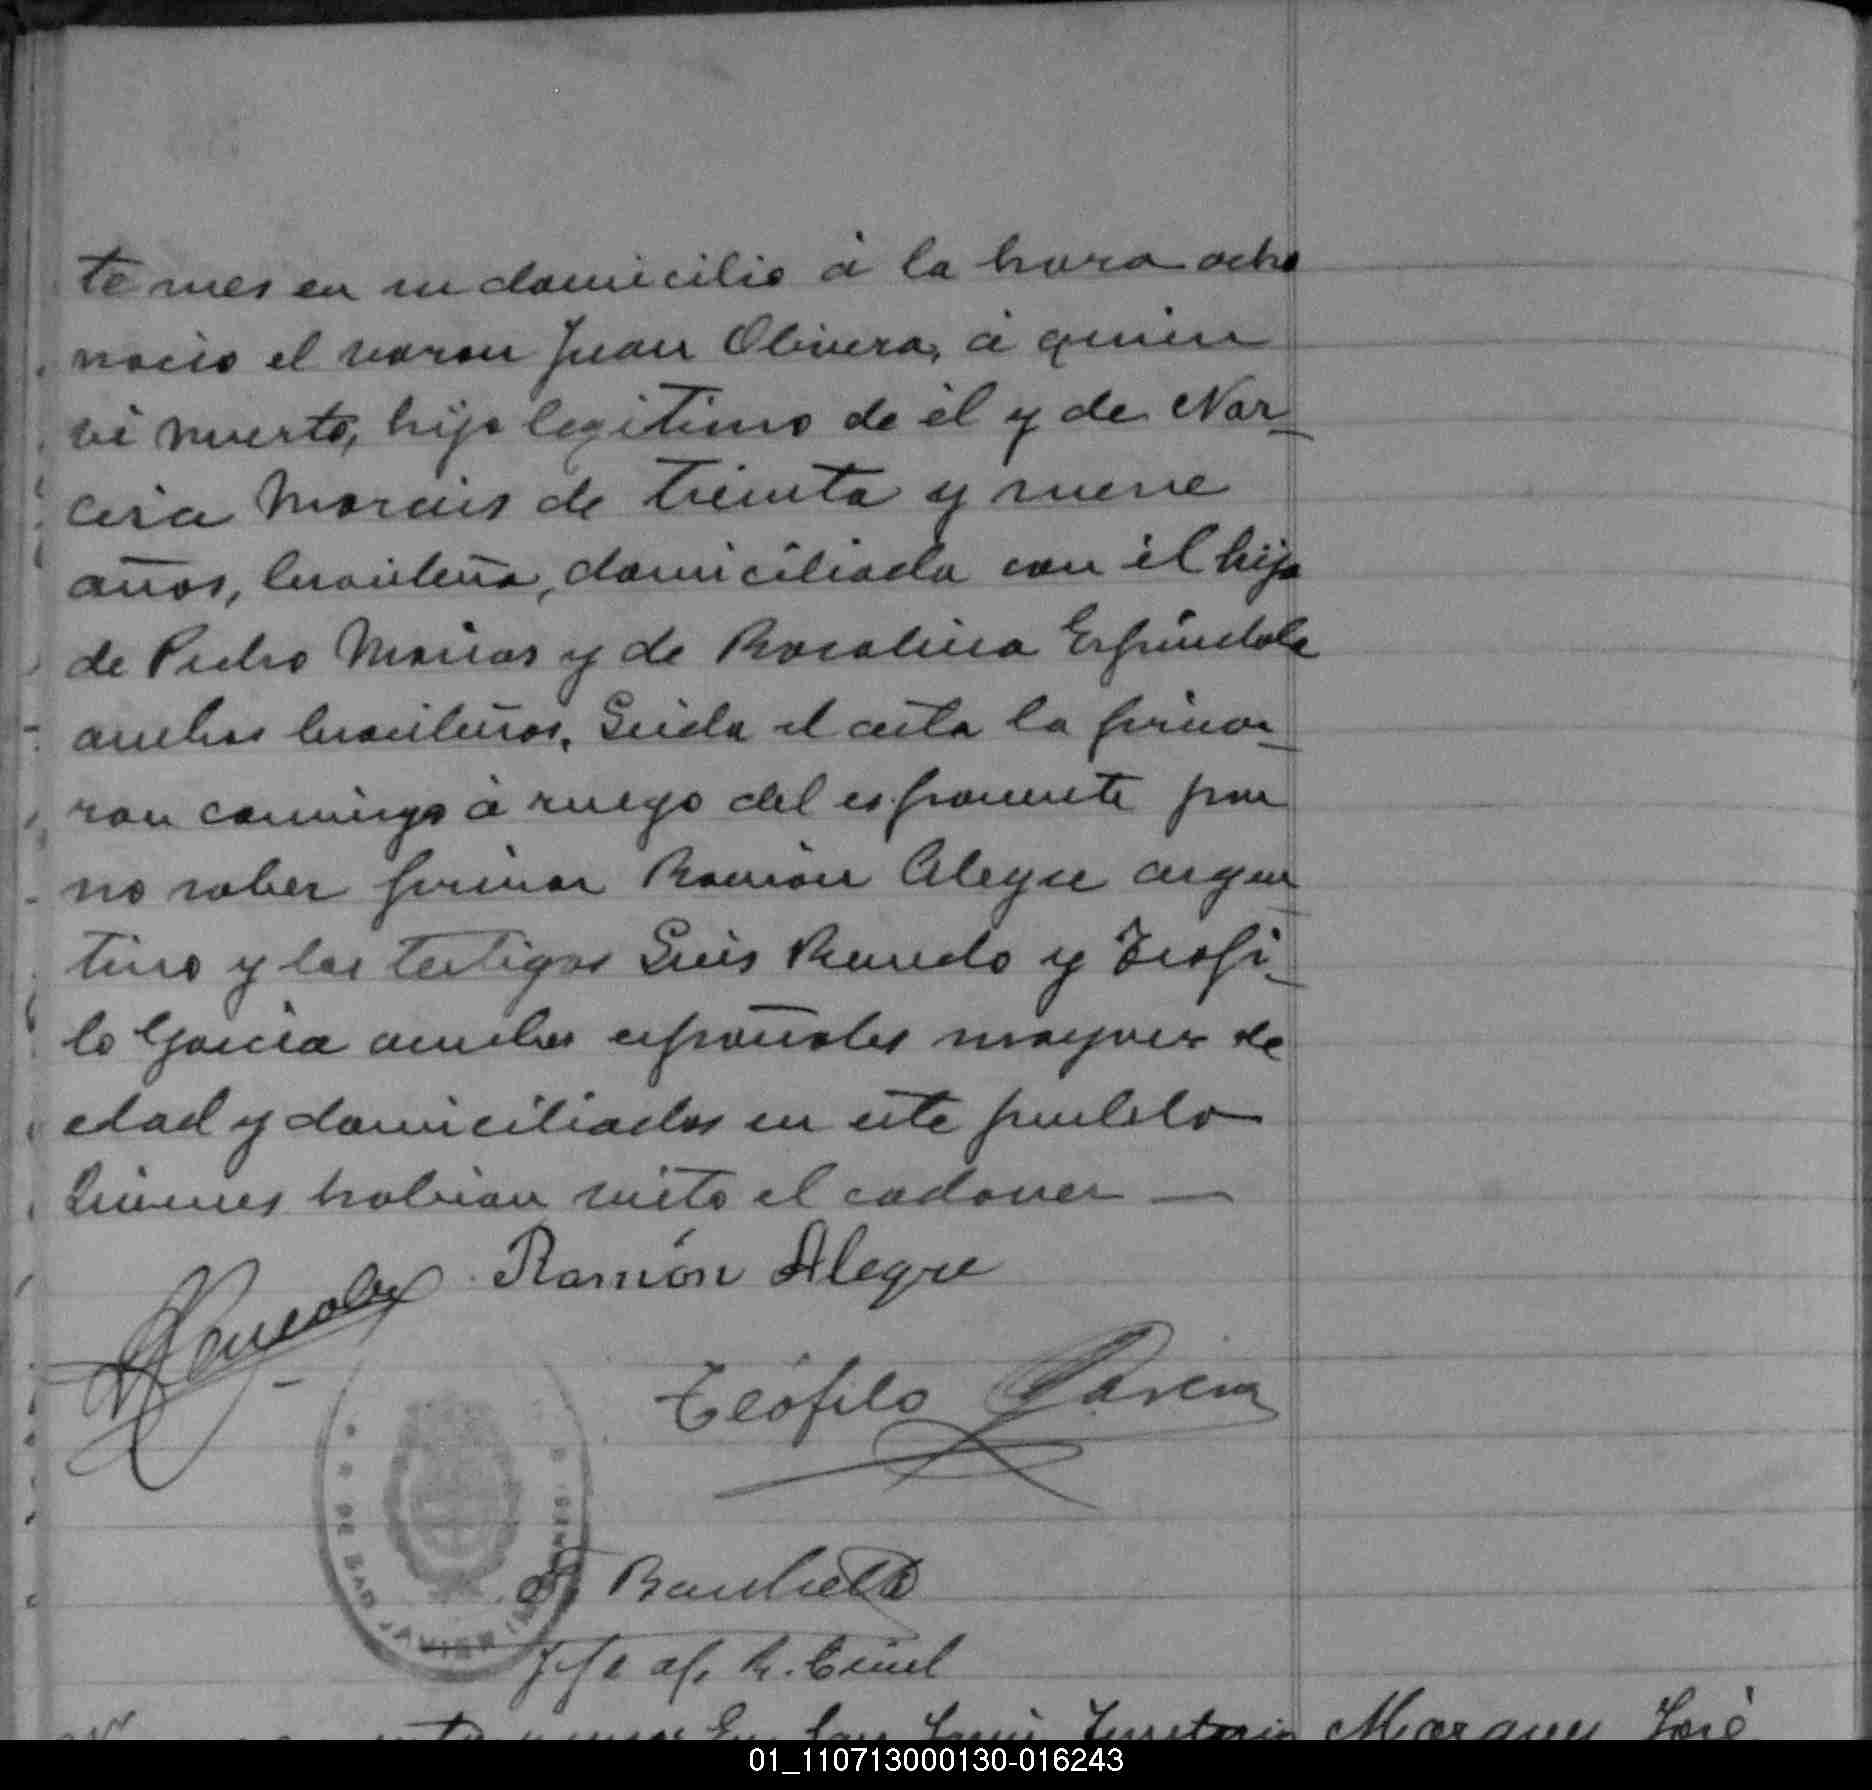 te mes en su domicilio á la hora ocho
nació el varon Juan Olivera, á quien
vi muerto, hijo legitimo de él y de Nar-
cisa Morais de treinta y nueve
años, brasileña, domiciliada con él hija
de Pedro Morias y de Rosalina Espindola
ambos brasileños. Leida el acta la firma-
ron conmigo á ruego del esponente por
no saber firmar Ramón Alegre argen-
tino y los testigos Luis Pomedo y Teofi-
lo Garcia ambos españoles mayores de
edad y domiciliados en este pueblo
Quienes habian visto el cadaver —
Ramón Alegre
Teófilo Garcia
DE SAN JAVIER
Jefe of. R. Civil
En San Javier Territorio
José
01_110713000130-016243